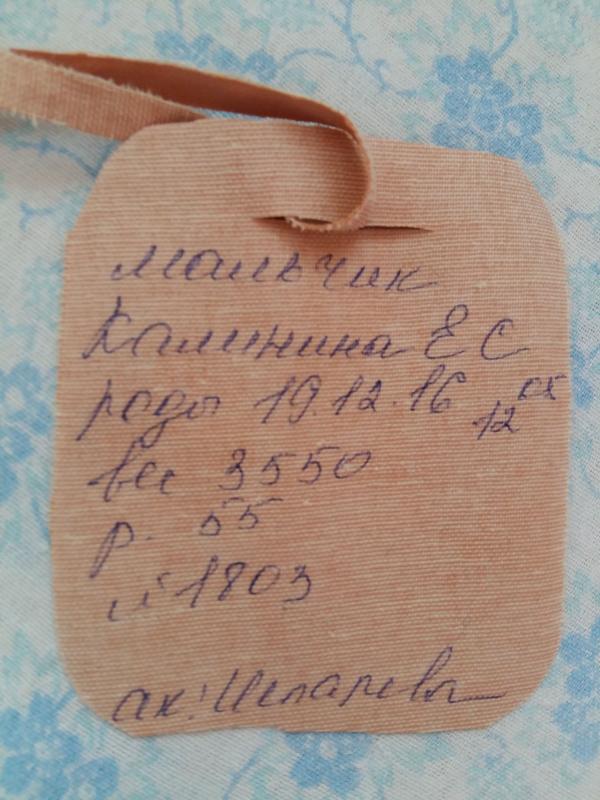 мальчик
Калинина Е С
роды 19.12.16 12 05
вес 3550
р. 55
1803
ак: